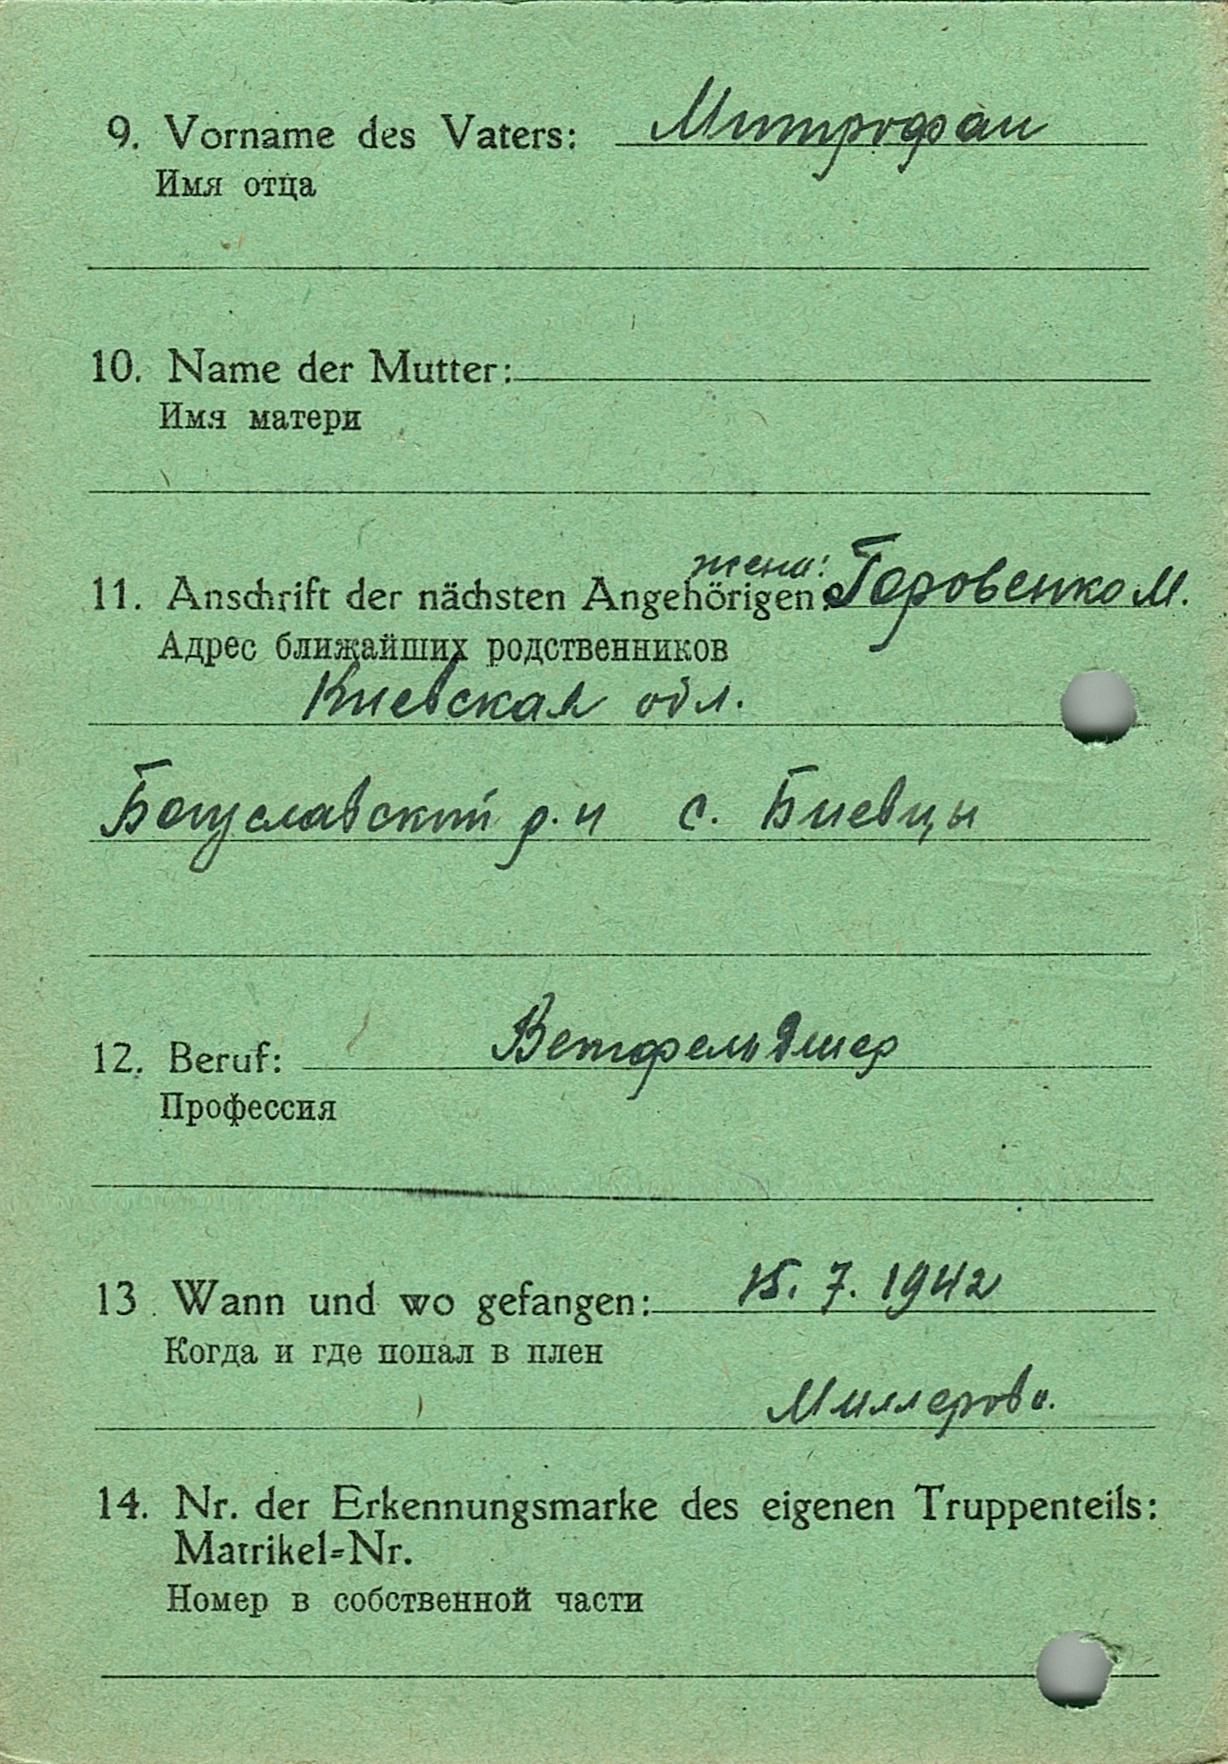 9. Vorname des Vaters: Митрофан
Имя отца
10. Name der Mutter:
Имя матери
жена:
11. Anschrift der nächsten Angehörigen: Горовенко М.
Адрес ближайших родственников
Киевская обл.
Богуславский р. н с. Биевцы
12. Beruf: Ветфельдшер
Профессия
13. Wann und wo gefangen: 15. 7. 1942
Когда и где попал в плен
Миллерово.
14. Nr. der Erkennungsmarke des eigenen Truppenteils:
Matrikel=Nr.
Номер в собственной части